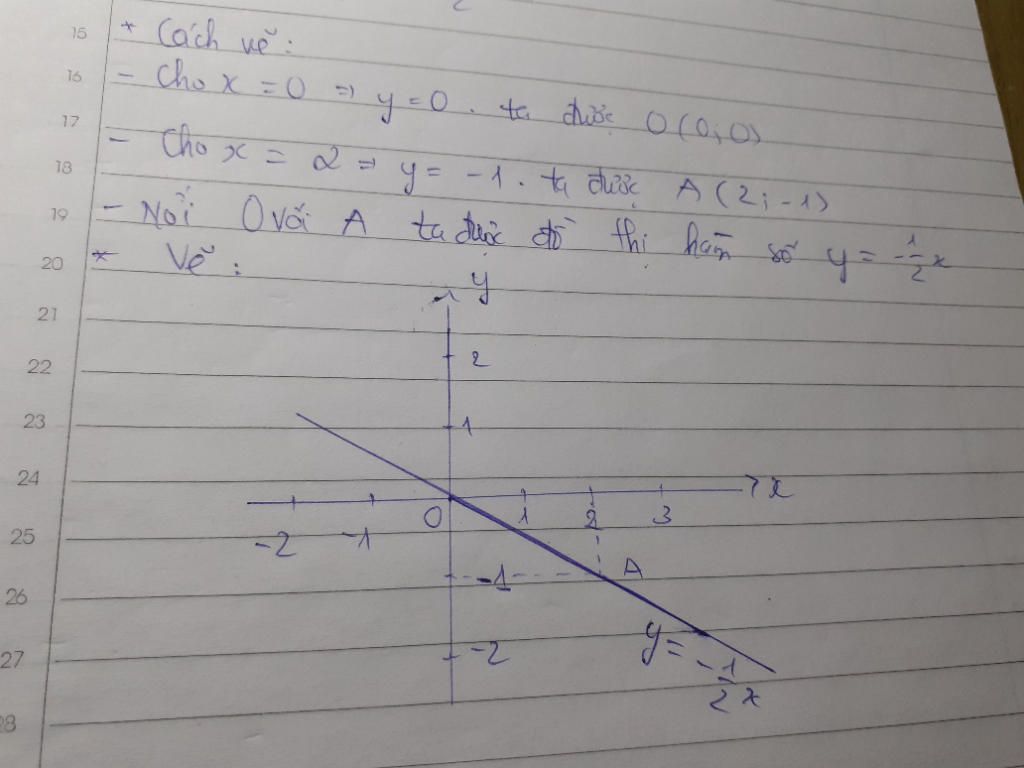 15 * Cách vẽ:
16 - Cho x = 0 => y = 0. ta được O(0;0)
17 - Cho x = 2 => y = -1. ta được A(2;-1)
18
19 - Nối O với A ta được đồ thị hàm số y = -1/2x
20 * Vẽ:
y
21
2
22
23 1
24
x
O 1 2 3
25 -2 -1
A
-1
26
y = -1/2 x
27 -2
28